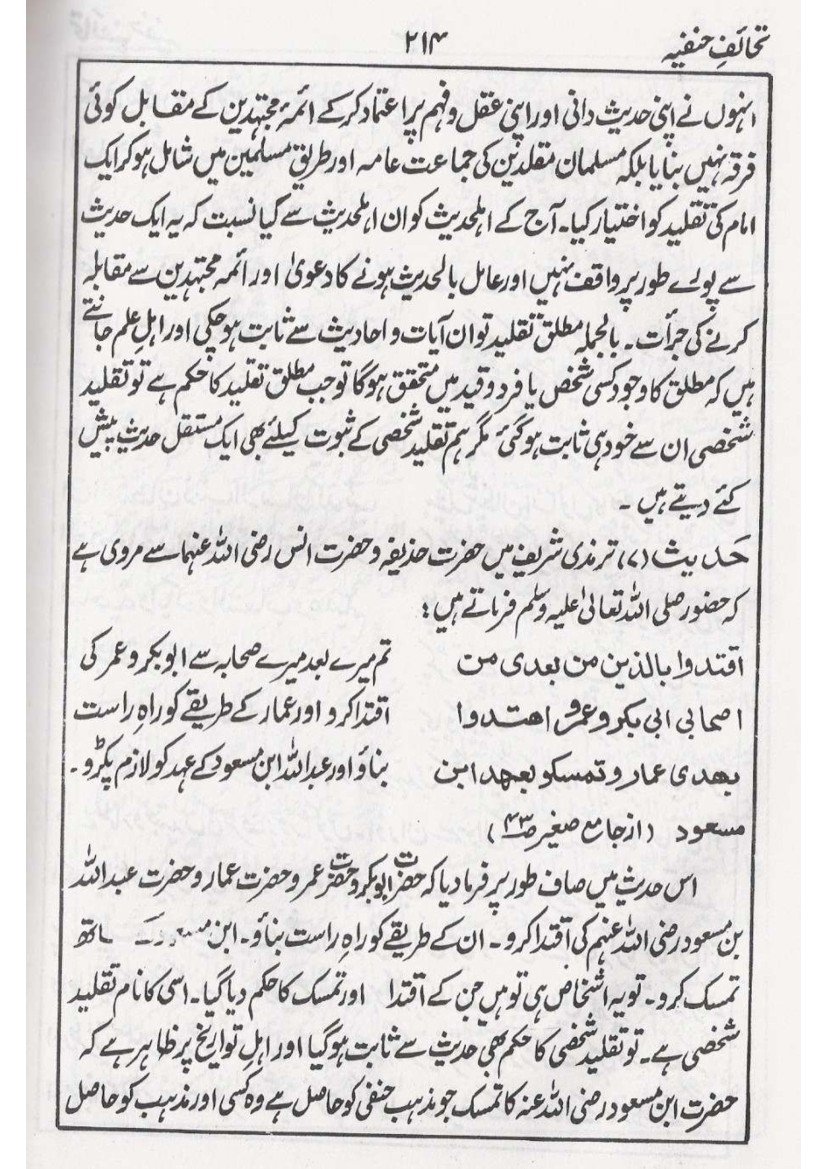 تحائفِ حنفیہ
۲۱۴
انہوں نے اپنی حدیث دانی اور اپنی عقل و فہم پر اعتماد کر کے ائمۂ مجتہدین کے مقابل کوئی
فرقہ نہیں بنایا بلکہ مسلمان مقلدین کی جماعت عامہ اور طریق مسلمین میں شامل ہو کر ایک
امام کی تقلید کو اختیار کیا۔ آج کے اہلحدیث کو ان اہلحدیث سے کیا نسبت کہ یہ ایک حدیث
سے پورے طور پر واقف نہیں اور عامل بالحدیث ہونے کا دعویٰ اور ائمہ مجتہدین سے مقابلہ
کرنے کی جرأت۔ بالجملہ مطلق تقلید تو ان آیات و احادیث سے ثابت ہو چکی اور اہلِ علم جانتے
ہیں کہ مطلق کا وجود کسی شخص یا فرد و قید میں متحقق ہوگا تو جب مطلق تقلید کا حکم ہے تو تقلید
شخصی ان سے خود ہی ثابت ہو گئی مگر ہم تقلید شخصی کے ثبوت کیلئے بھی ایک مستقل حدیث پیش
کئے دیتے ہیں۔
حدیث (۷) ترمذی شریف میں حضرت حذیفہ و حضرت انس رضی اللہ عنہما سے مروی ہے
کہ حضور صلی اللہ تعالیٰ علیہ وسلم فرماتے ہیں؛
اقتدوا بالذین من بعدی من
اصحابی ابی بکر و عمر و اھتدوا
بھدی عمار و تمسکو بعھد ابن
مسعود (از جامع صغیر ص۴۳)
تم میرے بعد میرے صحابہ سے ابو بکر و عمر کی
اقتدا کرو اور عمار کے طریقے کو راہِ راست
بناؤ اور عبداللہ ابن مسعود کے عہد کو لازم پکڑو۔
اس حدیث میں صاف طور پر فرما دیا کہ حضرت ابوبکر و حضرت عمر و حضرت عمار و حضرت عبداللہ
بن مسعود رضی اللہ عنہم کی اقتدا کرو۔ ان کے طریقے کو راہِ راست بناؤ۔ ابن مسعود کے ساتھ
تمسک کرو۔ تو یہ اشخاص ہی تو ہیں جن کے اقتدا اور تمسک کا حکم دیا گیا۔ اسی کا نام تقلید
شخصی ہے۔ تو تقلید شخصی کا حکم بھی حدیث سے ثابت ہو گیا اور اہلِ تواریخ پر ظاہر ہے کہ
حضرت ابن مسعود رضی اللہ عنہ کا تمسک جو مذہب حنفی کو حاصل ہے وہ کسی اور مذہب کو حاصل